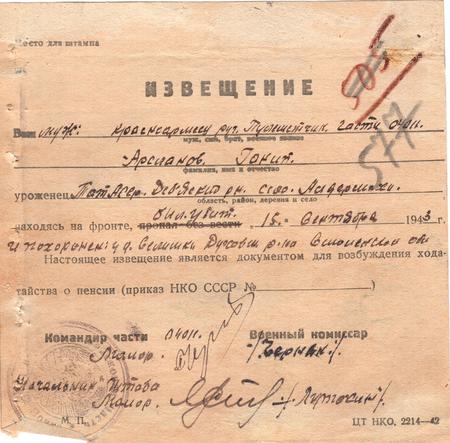 Место для штампа
505
577
ИЗВЕЩЕНИЕ
Ваш муж: красноармеец руч. Пулеметчик части 0401.
муж, сын, брат, военное звание
Арсланов Гонит.
фамилия, имя и отчество
уроженец ТатАССР
область, район, деревня и село
был убит.
находясь на фронте, пропал без вести 15. Сентября 1943 г
и похоронен: у д. Селишки Духовщ. р-на Смоленской об
Настоящее извещение является документом для возбуждения хода-
тайства о пенсии (приказ НКО СССР №
Командир части 0401. Военный комиссар
Майор. /Черняк/.
Начальник Штаба
Майор.
М. П. ЦТ НКО. 2214—42